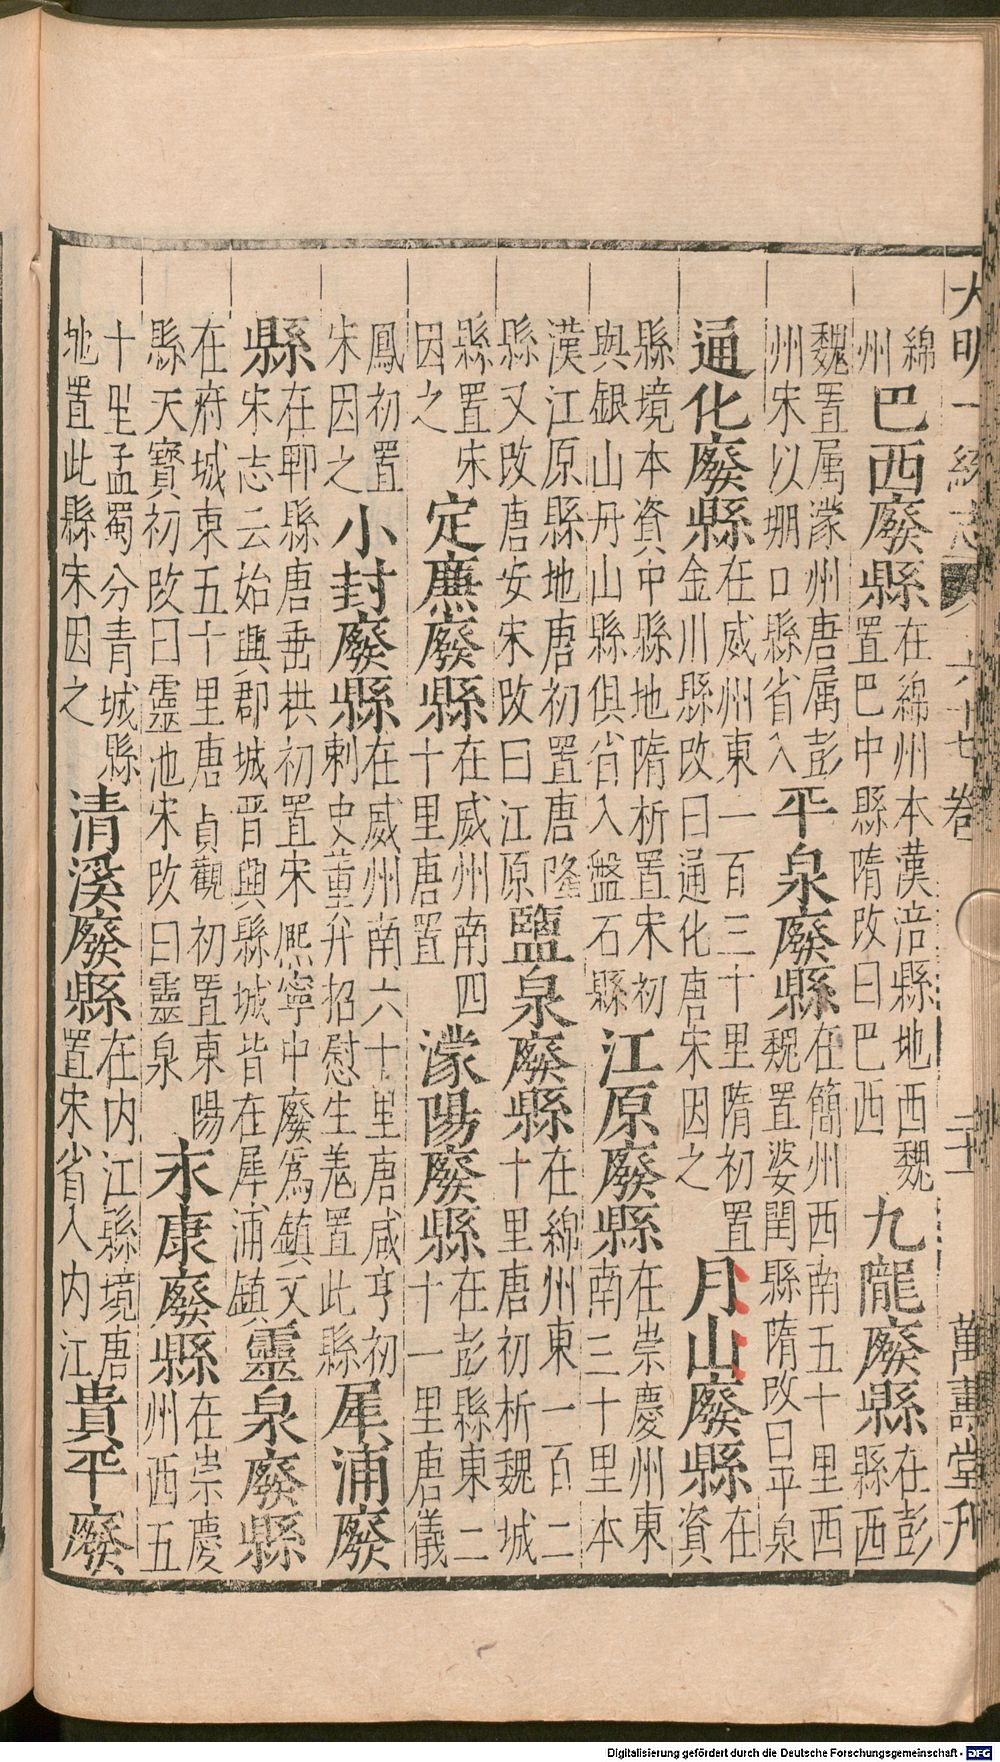 大明一統志 六十七卷 二十 萬壽堂刋
綿
州
巴西廢縣
在綿州本漢涪縣地西魏
置巴中縣隋改曰巴西
九隴廢縣
在彭
縣西
魏置属濛州唐属彭
州宋以堋口縣省入
平泉廢縣
在簡州西南五十里西
魏置婆閏縣隋改曰平泉
通化廢縣
在威州東一百三十里隋初置
金川縣改曰通化唐宋因之
月山廢縣
在
資
縣境本資中縣地隋析置宋初
與銀山丹山縣俱省入盤石縣
江原廢縣
在崇慶州東
南三十里本
漢江原縣地唐初置唐隆
縣又改唐安宋改曰江原
鹽泉廢縣
在綿州東一百二
十里唐初析魏城
縣置宋
因之
定廉廢縣
在威州南四
十里唐置
濛陽廢縣
在彭縣東二
十一里唐儀
鳳初置
宋因之
小封廢縣
在威州南六十里唐咸亨初
刺史董弁招慰生羗置此縣
犀浦廢
縣
在郫縣唐垂拱初置宋熈寧中廢爲鎮又
宋志云始興郡城晋興縣城皆在犀浦鎮
靈泉廢縣
在府城東五十里唐貞觀初置東陽
縣天寶初改曰靈池宋改曰靈泉
永康廢縣
在崇慶
州西五
十里孟蜀分青城縣
地置此縣宋因之
清溪廢縣
在内江縣境唐
置宋省入内江
貴平廢
Digitalisierung gefördert durch die Deutsche Forschungsgemeinschaft - DFG